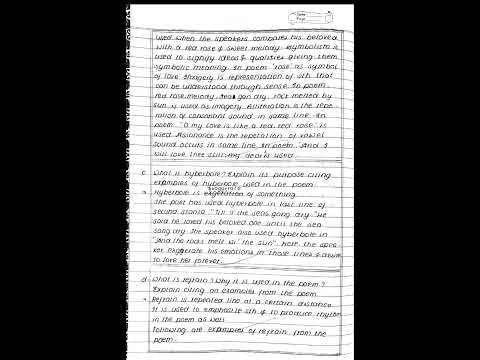 Date
Page
used when the speakers compares his beloved
with a red rose & sweet melody. Symbolism is
used to signify ideas & qualities giving them
symbolic meaning. In poem "rose" as symbol
of love. Imagery is representation of sth that
can be understood through sense. In poem,
red rose, melody, seas gan dry, rock melted by
sun is used as imagery. Alliteration is the repe
ration of consonant sound in same line. In
poem "O my love is like a red, red rose" is
used. Assonance is the repetation of vowel
sound occurs in same line. In poem "And I
will love thee still, my dear" is used.
c. What is hyberbole? Explain its purpose citing
examples of hyberbole used in the poem.
→ Hyberbole is exgetation of something.
The poet has used hyberbole in last line of
second stanza "Till a' the seas gang dry". He
said he loved his beloved one until the sea
gang dry. The speaker also used hyberbole in
"And the rocks melt wi' the sun". Here the spea
ker exagerate his emotions in those lines &
to love her forever.
d. What is refrain? Why it is used in the poem?
Explain citing an examples from the poem.
→ Refrain is repeated line at a certain distance.
It is used to emphasize sth & to produce rhythm
in the poem as well.
Following are examples of refrain from the
poem.